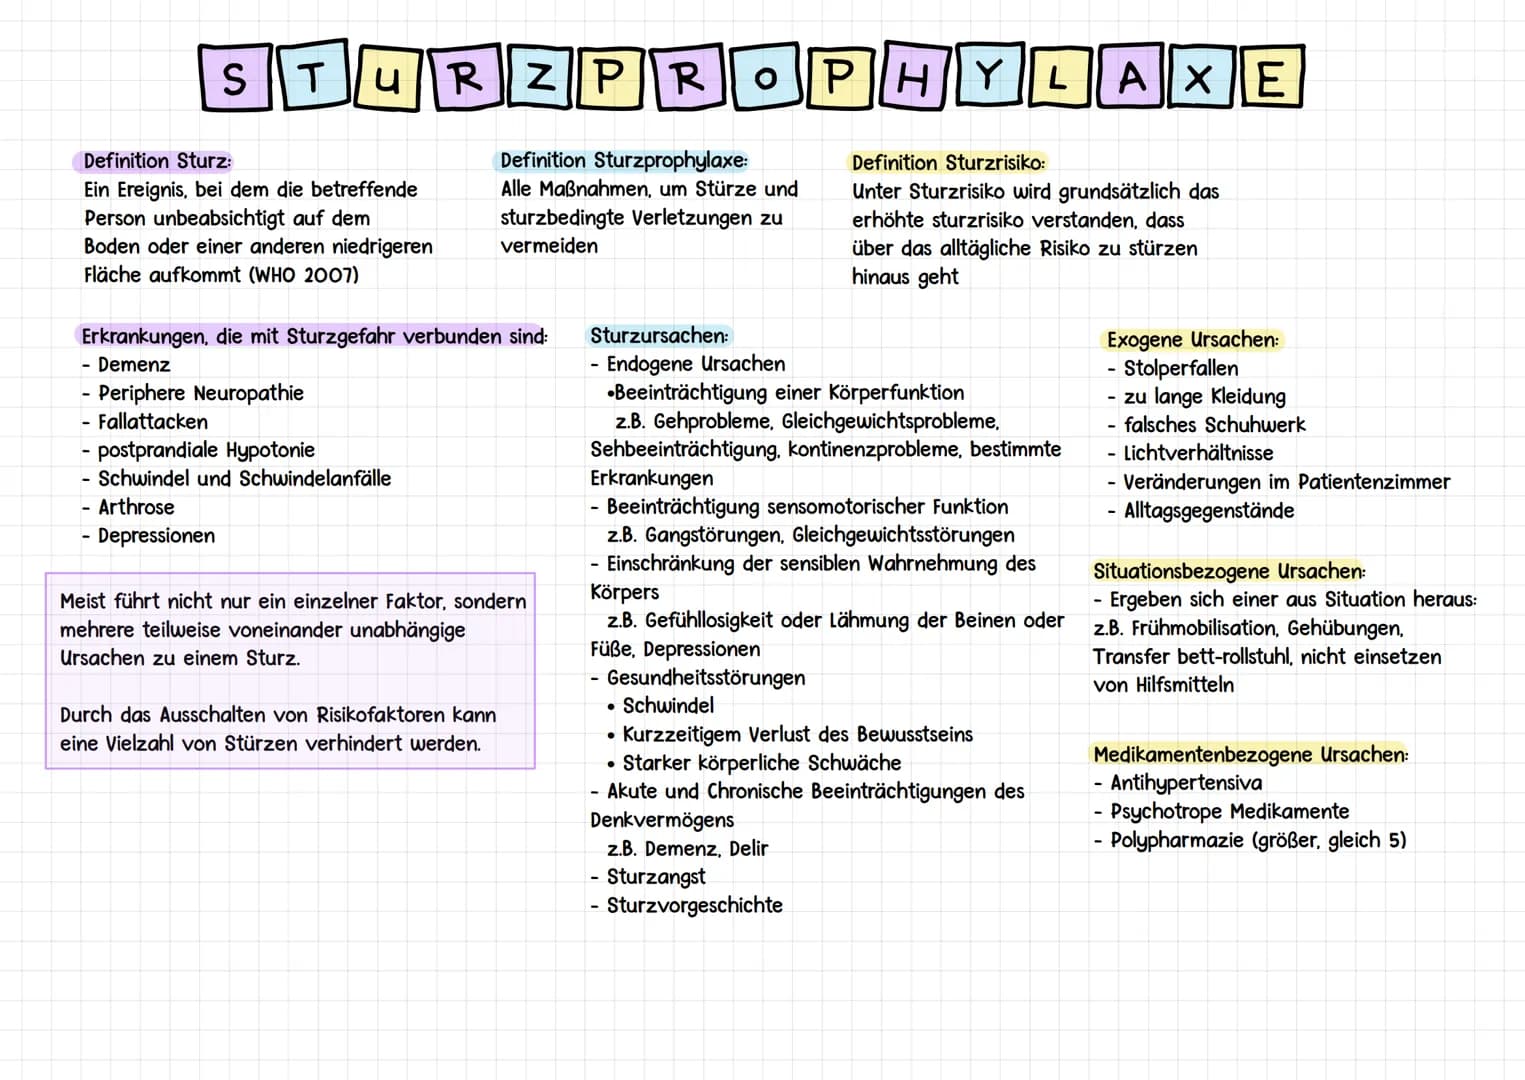 STURZPROPHYLAXE
Definition Sturz:
Ein Ereignis, bei dem die betreffende
Person unbeabsichtigt auf dem
Boden oder einer anderen niedrigeren
Fläche aufkommt (WHO 2007)
Definition Sturzprophylaxe:
Alle Maßnahmen, um Stürze und
sturzbedingte Verletzungen zu
vermeiden
Definition Sturzrisiko:
Unter Sturzrisiko wird grundsätzlich das
erhöhte sturzrisiko verstanden, dass
über das alltägliche Risiko zu stürzen
hinaus geht
Erkrankungen, die mit Sturzgefahr verbunden sind:
- Demenz
- Periphere Neuropathie
- Fallattacken
- postprandiale Hypotonie
- Schwindel und Schwindelanfälle
- Arthrose
- Depressionen
Meist führt nicht nur ein einzelner Faktor, sondern
mehrere teilweise voneinander unabhängige
Ursachen zu einem Sturz.
Durch das Ausschalten von Risikofaktoren kann
eine Vielzahl von Stürzen verhindert werden.
Sturzursachen:
- Endogene Ursachen
•Beeinträchtigung einer Körperfunktion
z.B. Gehprobleme, Gleichgewichtsprobleme,
Sehbeeinträchtigung, kontinenzprobleme, bestimmte
Erkrankungen
- Beeinträchtigung sensomotorischer Funktion
z.B. Gangstörungen, Gleichgewichtsstörungen
- Einschränkung der sensiblen Wahrnehmung des
Körpers
z.B. Gefühllosigkeit oder Lähmung der Beinen oder
Füße, Depressionen
- Gesundheitsstörungen
• Schwindel
• Kurzzeitigem Verlust des Bewusstseins
• Starker körperliche Schwäche
- Akute und Chronische Beeinträchtigungen des
Denkvermögens
z.B. Demenz, Delir
- Sturzangst
- Sturzvorgeschichte
Exogene Ursachen:
- Stolperfallen
- zu lange Kleidung
- falsches Schuhwerk
- Lichtverhältnisse
- Veränderungen im Patientenzimmer
- Alltagsgegenstände
Situationsbezogene Ursachen:
- Ergeben sich einer aus Situation heraus:
z.B. Frühmobilisation, Gehübungen,
Transfer bett-rollstuhl, nicht einsetzen
von Hilfsmitteln
Medikamentenbezogene Ursachen:
- Antihypertensiva
- Psychotrope Medikamente
- Polypharmazie (größer, gleich 5)